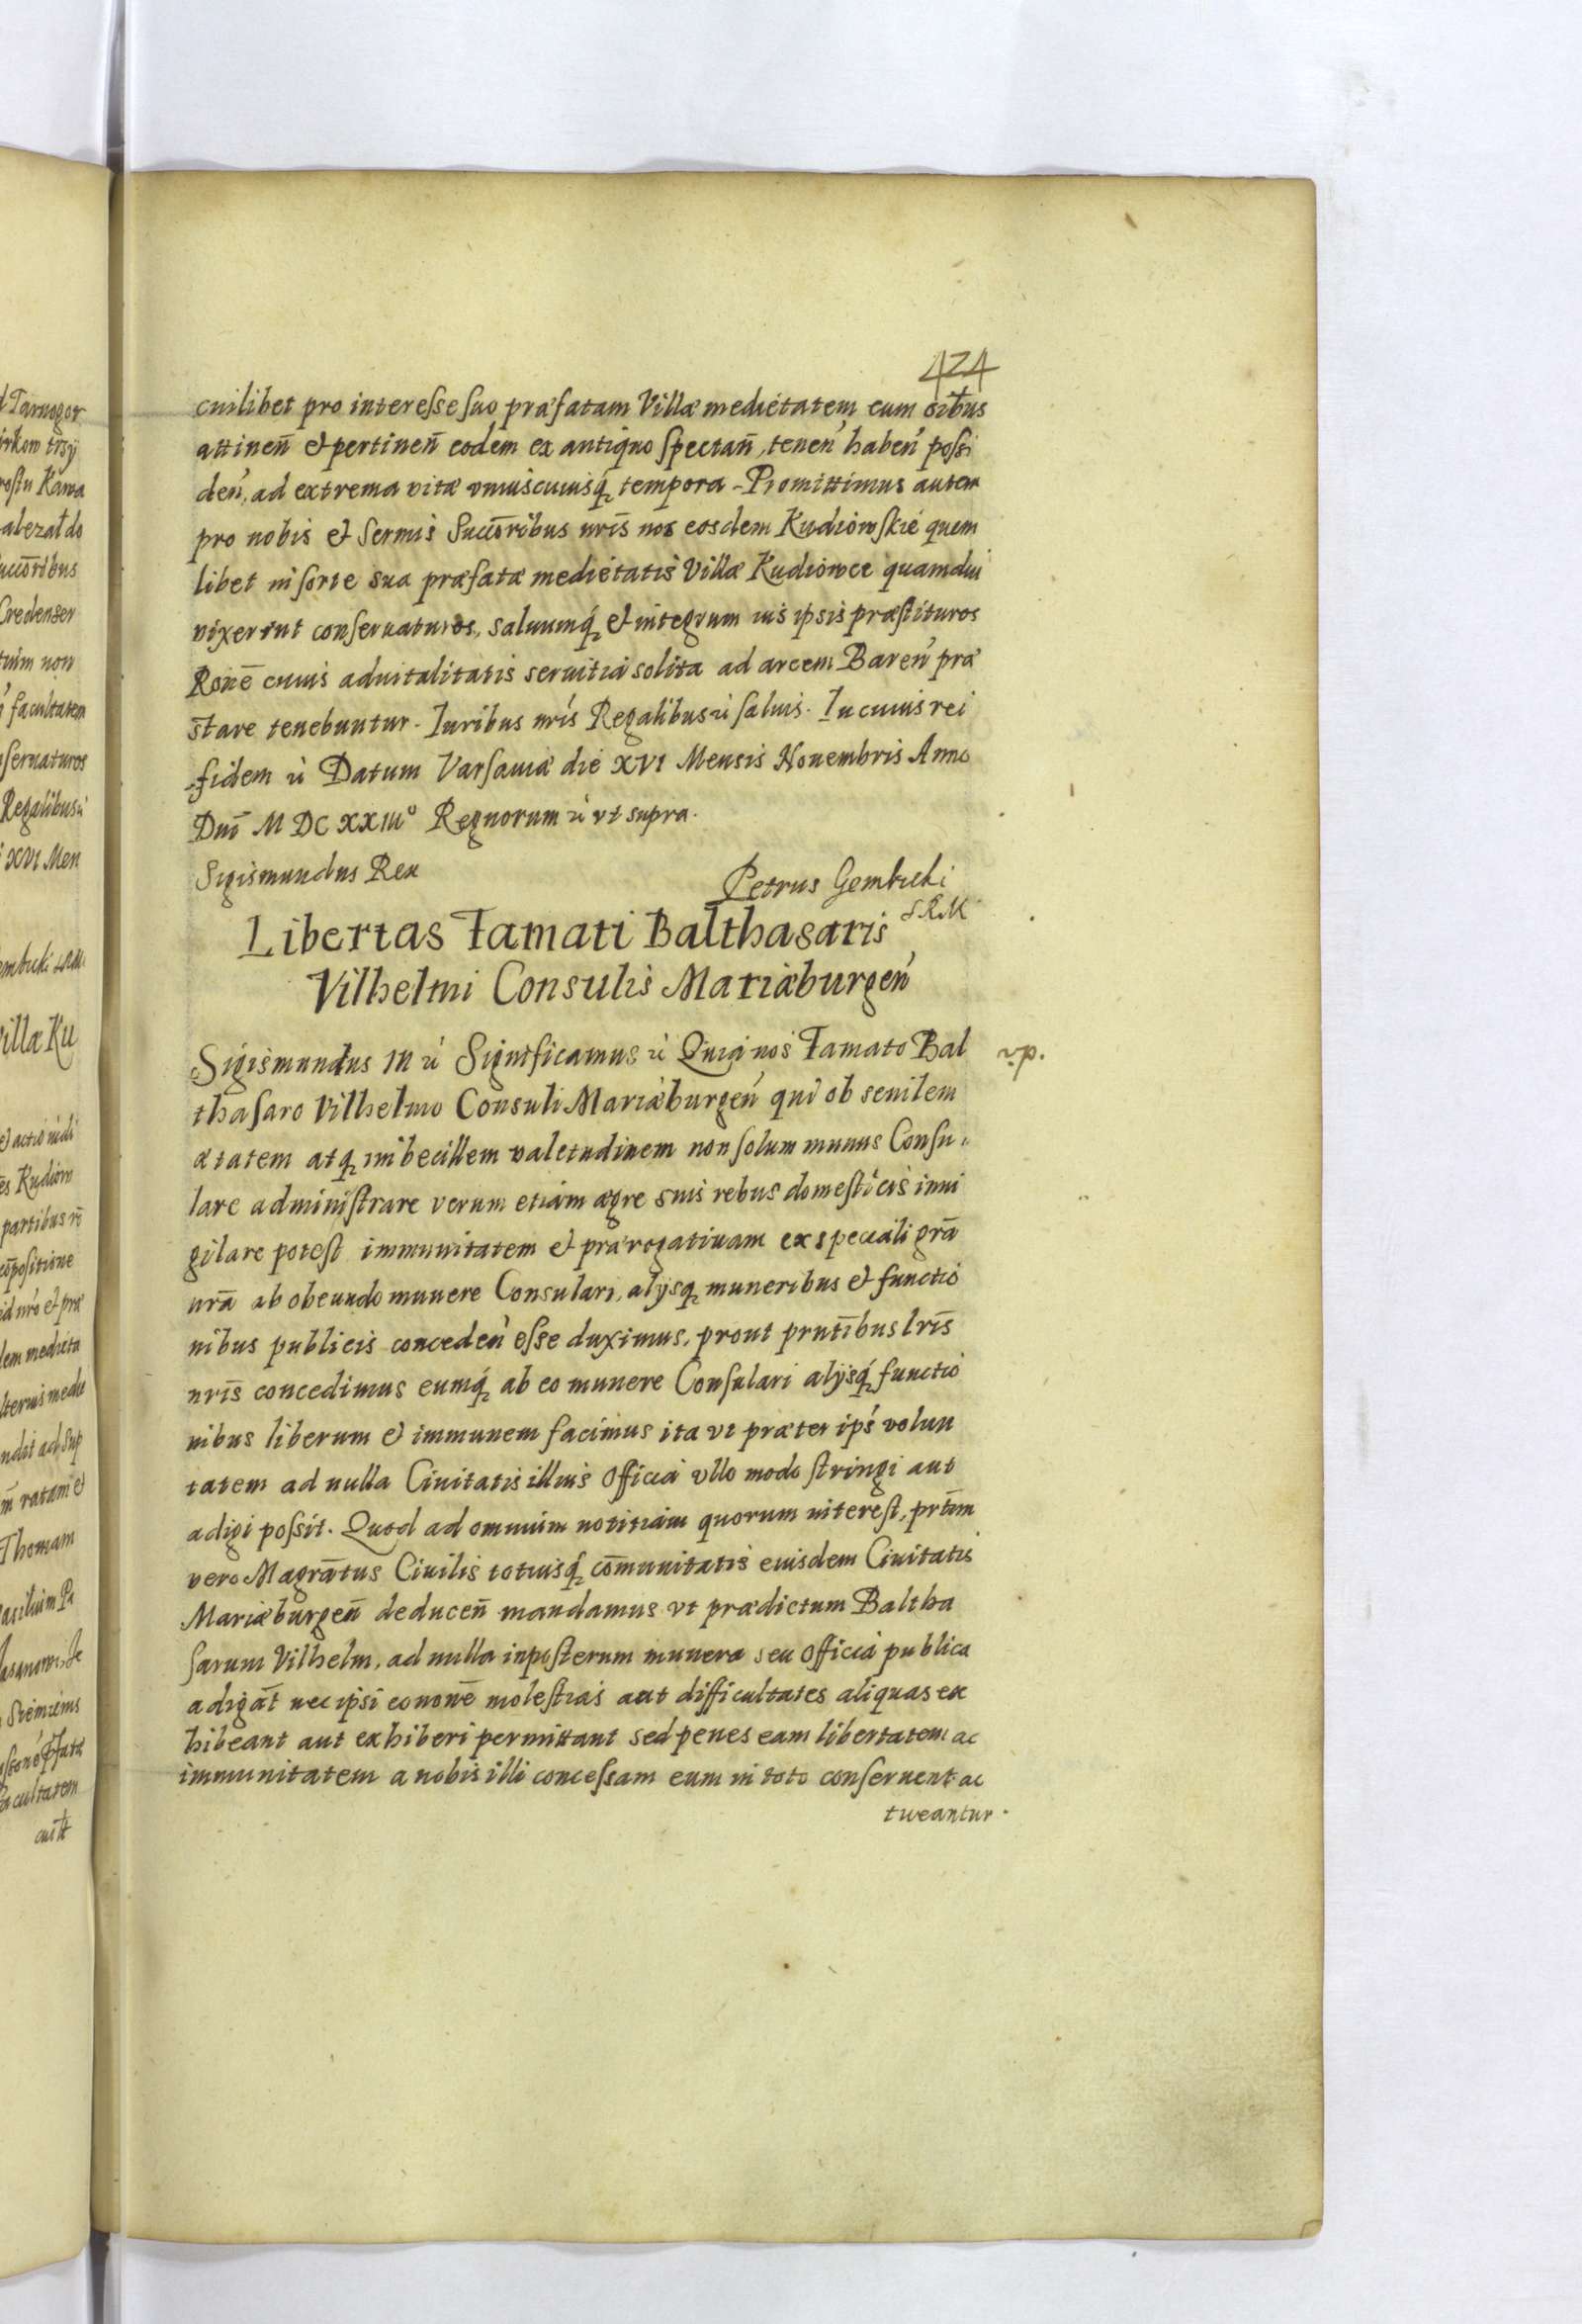 424
cuilibet pro interesse suo præfatam Villæ medietatem cum oibus
attineñ et pertineñ eodem ex antiquo spectañ, teneń habeń possi
deń, ad extrema vitæ vniuscuiusq; tempora. Promittimus autem
pro nobis et Sermis Succoribus nris nos eosdem Kudiowskie quem
libet in sorte sua præfatæ medietatis Villæ Kudiowce quamdiu
vixerint conseruaturos, saluumq; et integrum ius ipsis præstituros
Rone cuius aduitalitatis seruitia solita ad arcem Bareń præ
stare tenebuntur. Iuribus nris Regalibus & saluis. In cuius rei
fidem & Datum Varsauiæ die XVI Mensis Nouembris Anno
Dni M DC XXIIIº Regnorum & vt supra.
Sigismundus Rex
Petrus Gembicki
S.R.M
Libertas Famati Balthasaris
Vilhelmi Consulis Mariæburgeń
Sigismundus III & Significamus & Quia nos Famato Bal
thasaro Vilhelmo Consuli Mariæburgeń qui ob senilem
ætatem atq; imbecillem valetudinem non solum munus Consu
lare administrare verum etiam ægre suis rebus domesticis inui
gilare potest immunitatem et prærogatiuam ex speciali gra
nra ab obeundo munere Consulari, alijsq; muneribus et functio
nibus publicis concedeń esse duximus, prout pntibus lris
nris concedimus eumq; ab eo munere Consulari alijsq; functio
nibus liberum et immunem facimus ita vt præter ips volun
tatem ad nulla Ciuitatis illius Officia vllo modo stringi aut
adigi possit. Quod ad omnium notitiam quorum interest, prtim
vero Magratus Ciuilis totiusq; comunitatis eiusdem Ciuitatis
Mariæburgeñ deduceñ mandamus vt prædictum Baltha
sarum Vilhelm, ad nulla inposterum munera seu Officia publica
adigat nec ipsi eo none molestias aut difficultates aliquas ex
hibeant aut exhiberi permittant sed penes eam libertatem ac
immunitatem a nobis illi concessam eum in toto conseruent ac
tueantur.